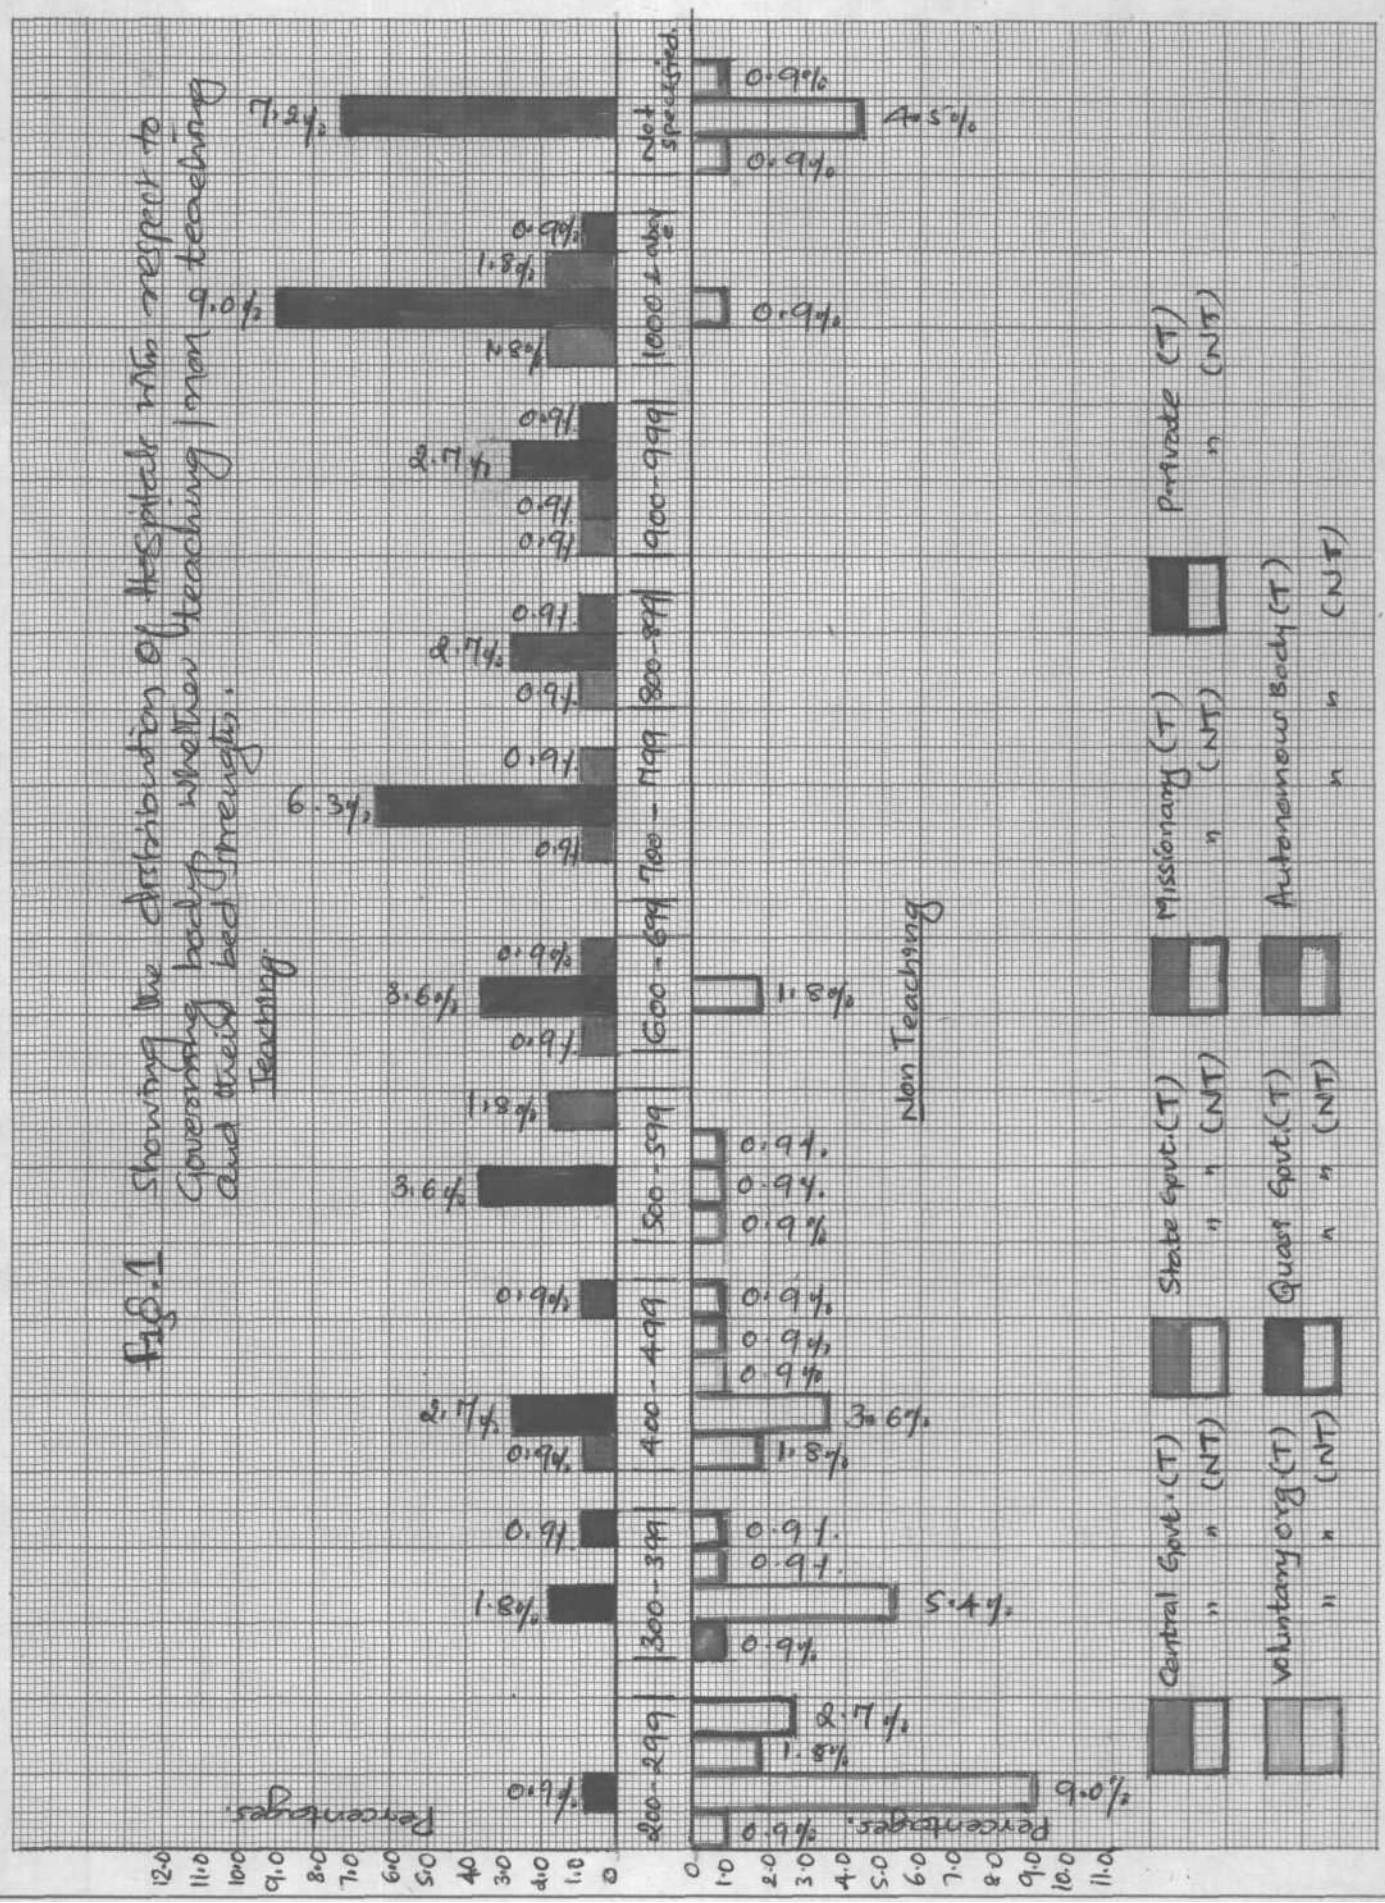 Fig.1 Showing the distribution of Hospitals with respect to
Governing body, whether teaching / non teaching
and their bed strength.
Teaching
Percentages.
12.0
11.0
10.0
9.0
8.0
7.0
6.0
5.0
4.0
3.0
2.0
1.0
0
0.9%
1.8% 0.9%
0.9% 2.7% 0.9%
3.6% 1.8%
0.9% 3.6% 0.9%
0.9% 6.3% 0.9%
0.9% 2.7% 0.9%
0.9% 0.9% 2.7% 0.9%
1.8% 9.0% 1.8% 0.9%
7.2%
200-299 | 300-399 | 400-499 | 500-599 | 600-699 | 700-799 | 800-899 | 900-999 | 1000 & above | Not specified.
0
1.0
2.0
3.0
4.0
5.0
6.0
7.0
8.0
9.0
10.0
11.0
Percentages.
0.9% 9.0% 1.8% 2.7%
0.9% 5.4% 0.9% 0.9%
1.8% 3.6% 0.9% 0.9% 0.9%
0.9% 0.9% 0.9%
1.8%
0.9%
0.9% 4.5% 0.9%
Non Teaching
Central Govt.(T) State Govt.(T) Missionary (T) Private (T)
" " (NT) " " (NT) " (NT) " (NT)
Voluntary org.(T) Quasi Govt.(T) Autonomous Body (T)
" " (NT) " " (NT) " " (NT)